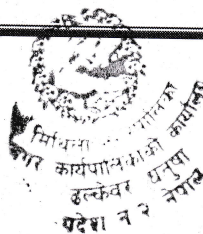 मिथिला
नगर कार्यपालिकाको कार्यालय
ढल्केवर धनुषा
प्रदेश नं २ नेपाल